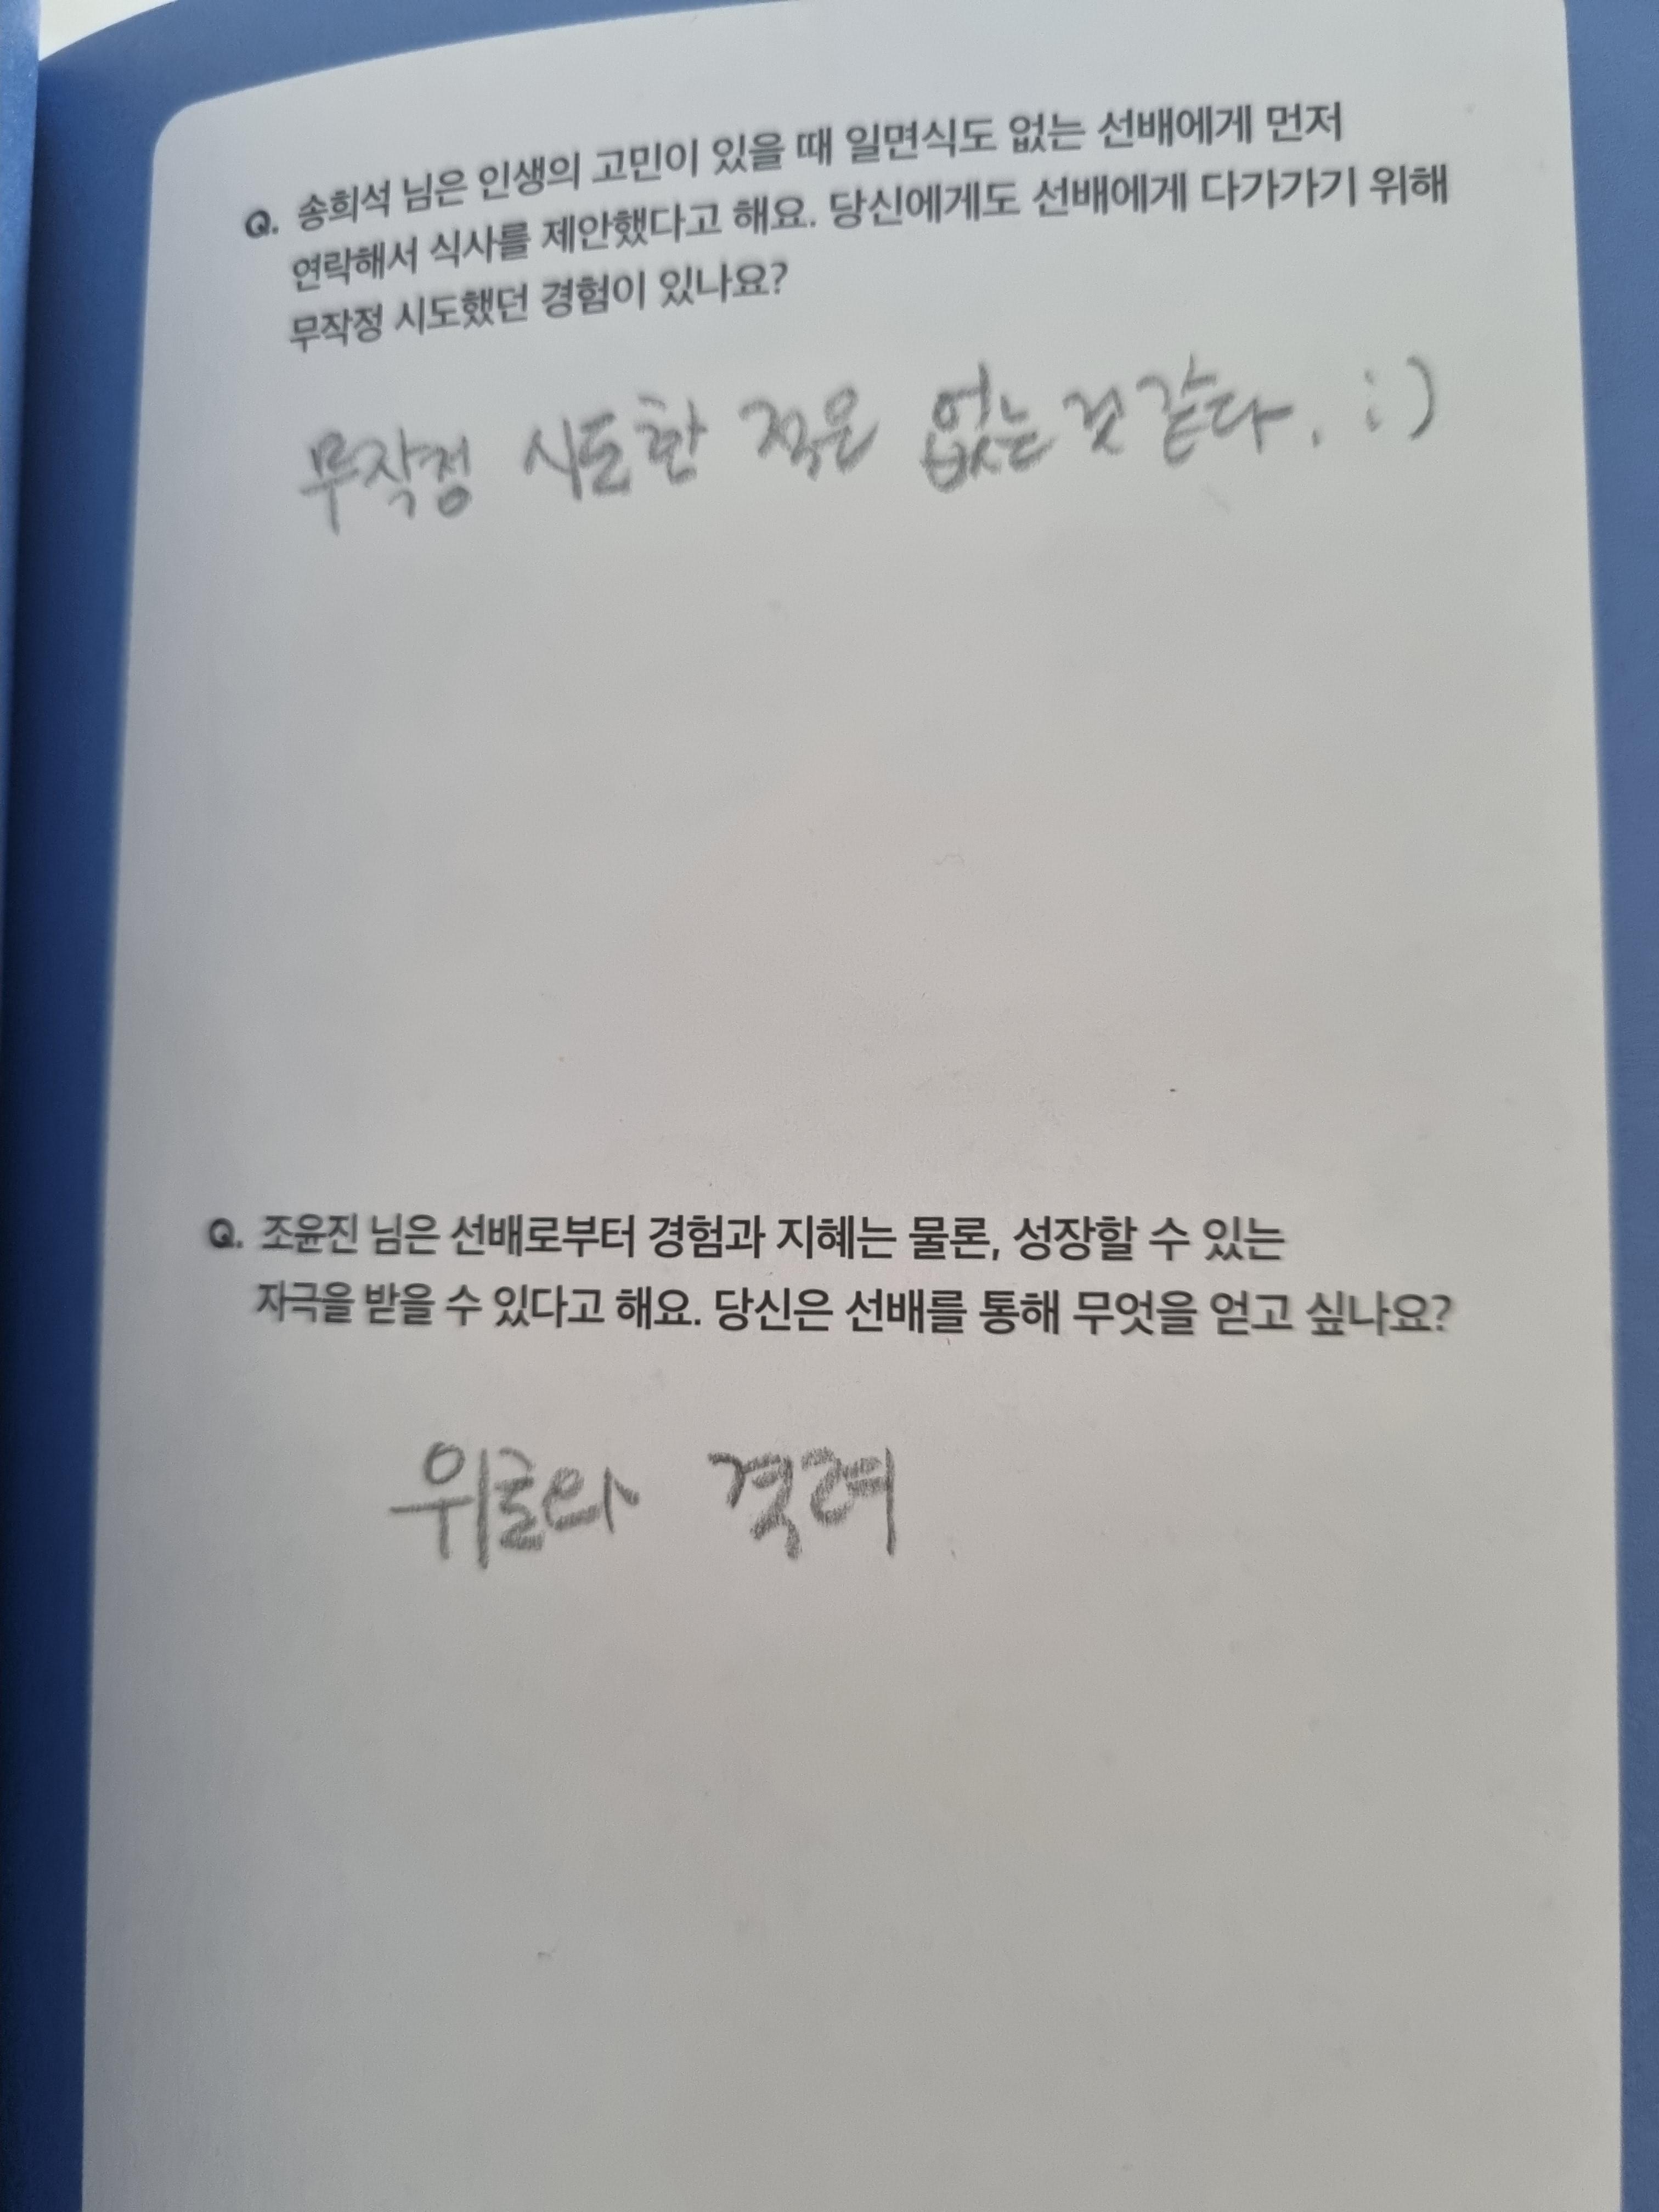 Q. 송희석 님은 인생의 고민이 있을 때 일면식도 없는 선배에게 먼저
연락해서 식사를 제안했다고 해요. 당신에게도 선배에게 다가가기 위해
무작정 시도했던 경험이 있나요?
무작정 시도한 적은 없는 것 같다. :)
Q. 조윤진 님은 선배로부터 경험과 지혜는 물론, 성장할 수 있는
자극을 받을 수 있다고 해요. 당신은 선배를 통해 무엇을 얻고 싶나요?
위로와 격려